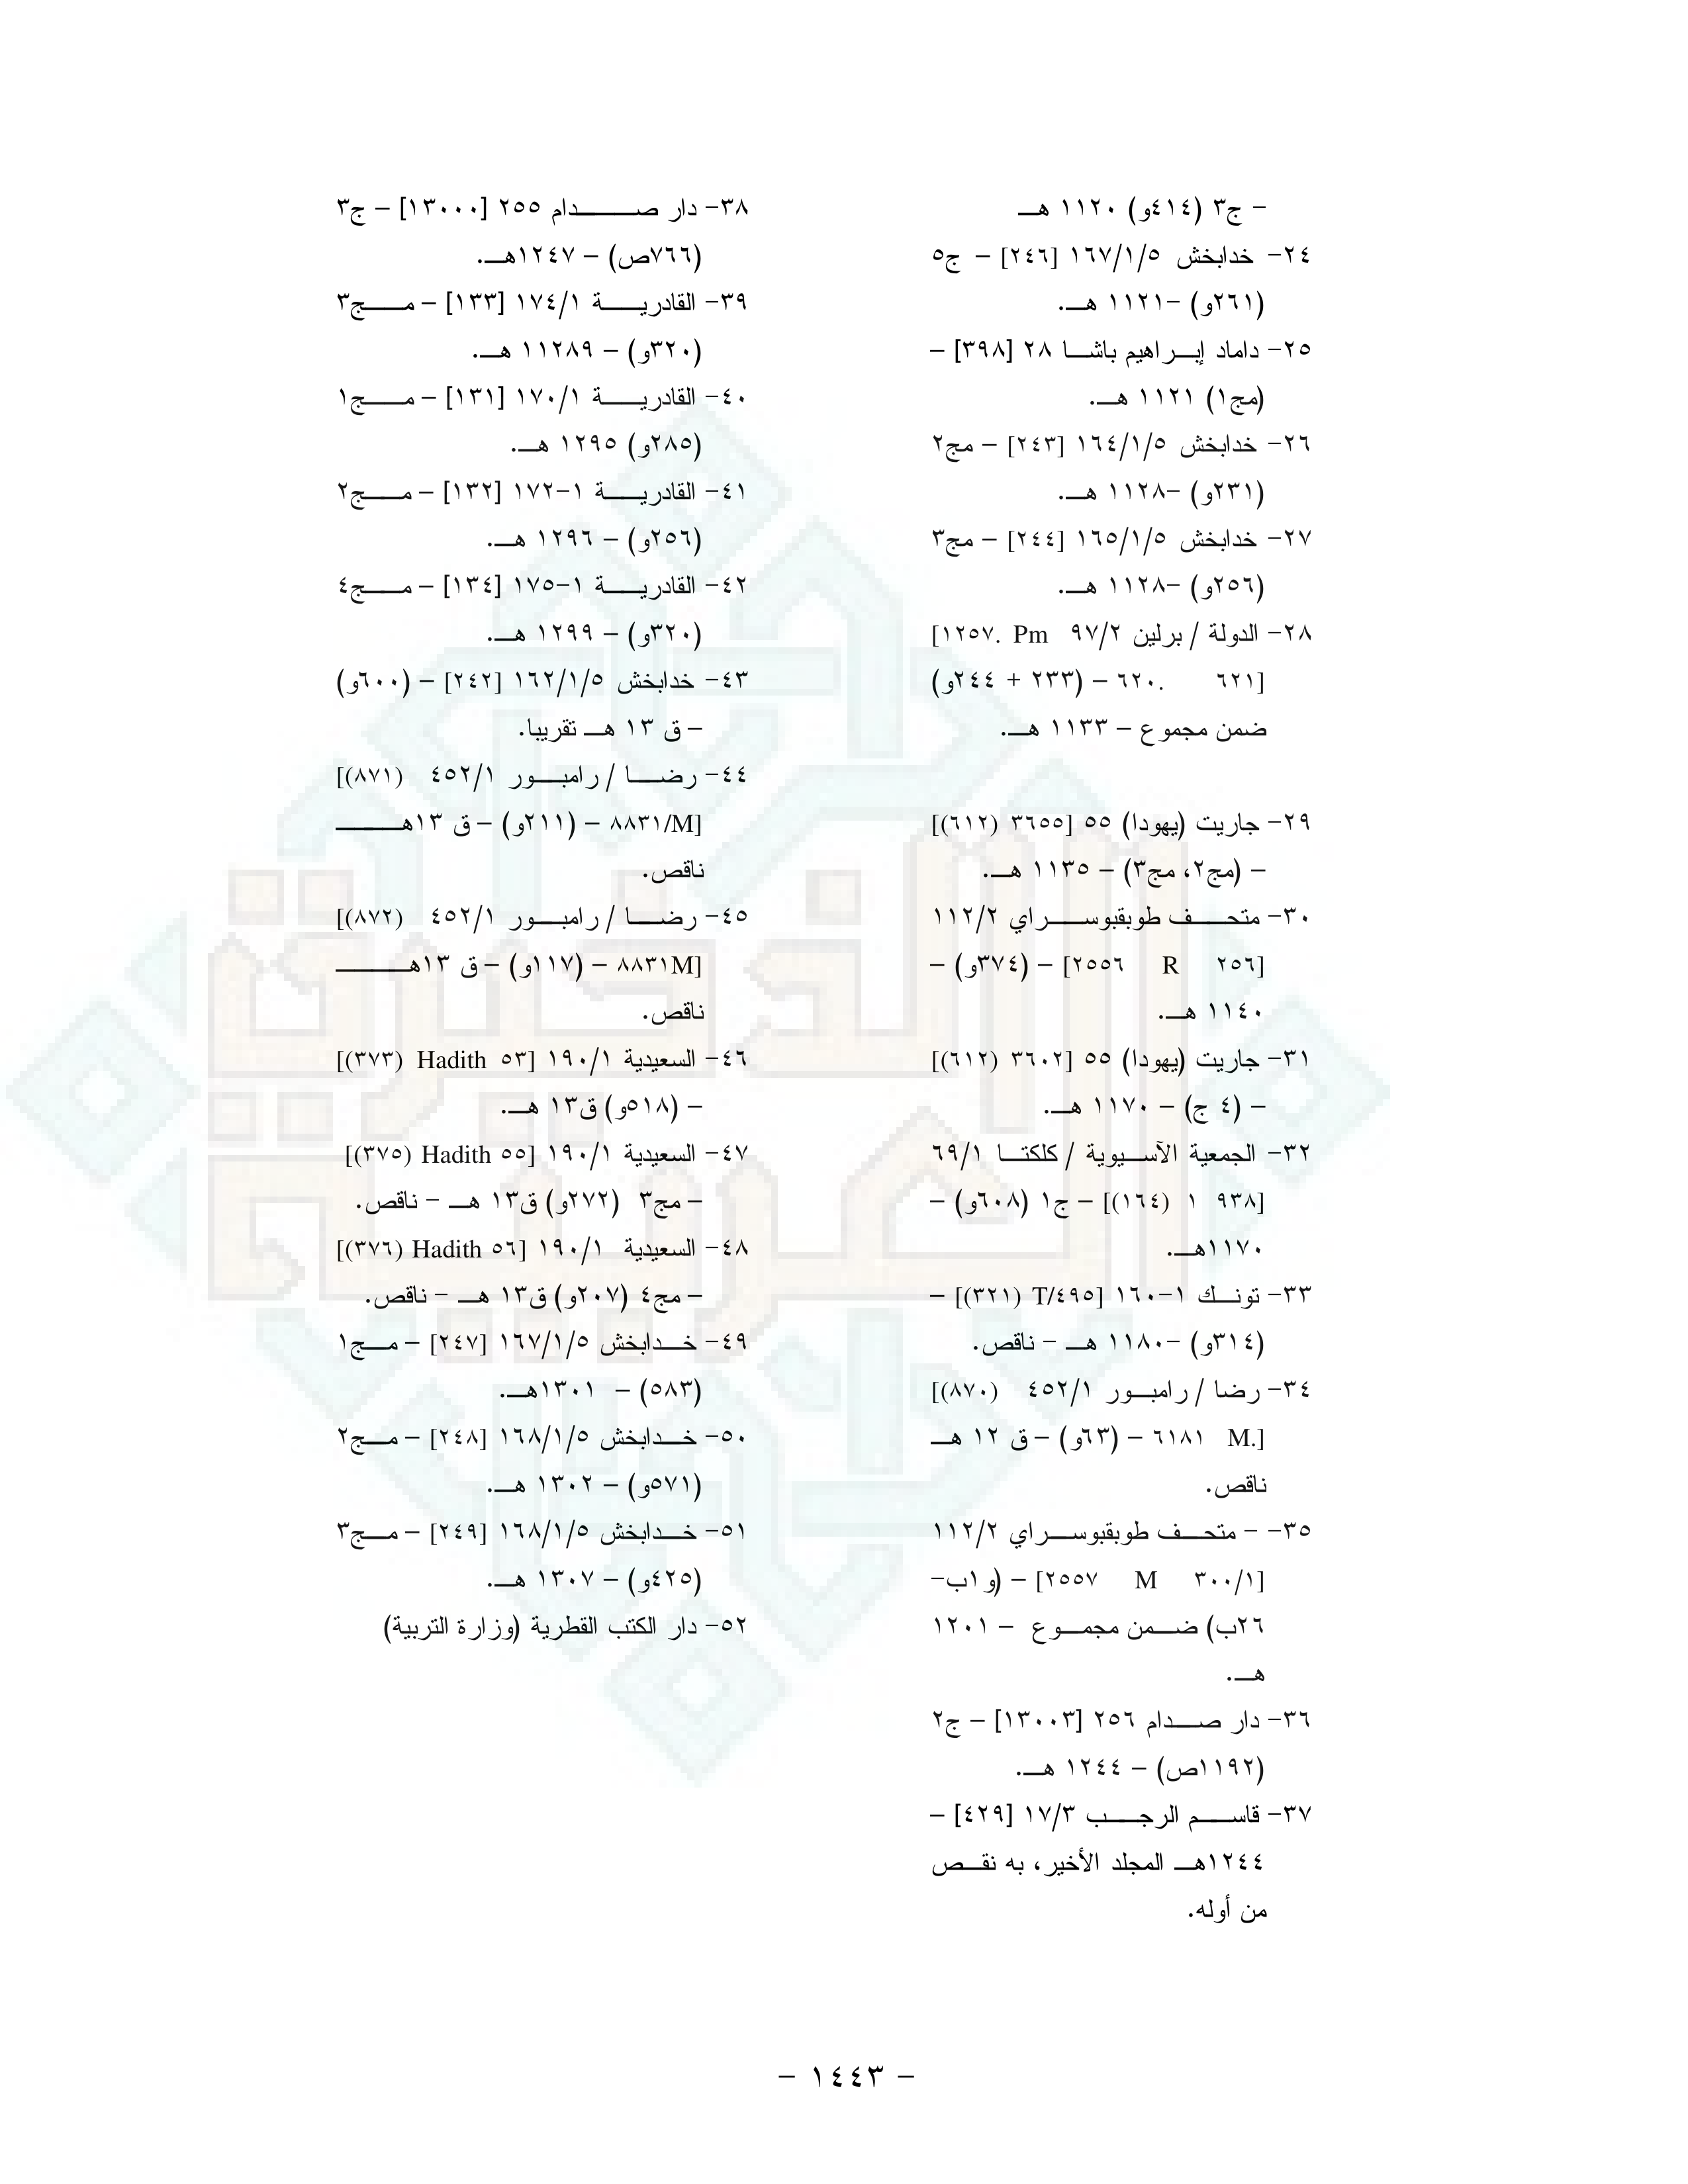 – ج٣ (٤١٤و) ١١٢٠ هـ
٢٤- خدابخش ١٦٧/١/٥ [٢٤٦] – ج٥
(٢٦١و) –١١٢١ هـ.
٢٥- داماد إبراهيم باشا ٢٨ [٣٩٨] –
(مج١) ١١٢١ هـ.
٢٦- خدابخش ١٦٤/١/٥ [٢٤٣] – مج٢
(٢٣١و) –١١٢٨ هـ.
٢٧- خدابخش ١٦٥/١/٥ [٢٤٤] – مج٣
(٢٥٦و) –١١٢٨ هـ.
٢٨- الدولة / برلين ٩٧/٢ Pm .١٢٥٧]
[٦٢١ .٦٢٠ – (٢٣٣ + ٢٤٤و)
ضمن مجموع – ١١٣٣ هـ.
٢٩- جاريت (يهودا) ٥٥ [٣٦٥٥ (٦١٢)]
– (مج٢، مج٣) – ١١٣٥ هـ.
٣٠- متحف طوبقبوسراي ١١٢/٢
[٢٥٦ R ٢٥٥٦] – (٣٧٤و) –
١١٤٠ هـ.
٣١- جاريت (يهودا) ٥٥ [٣٦٠٢ (٦١٢)]
– (٤ ج) – ١١٧٠ هـ.
٣٢- الجمعية الآسيوية / كلكتا ٦٩/١
[٩٣٨ ١ (١٦٤)] – ج١ (٦٠٨و) –
١١٧٠هـ.
٣٣- تونك ١-١٦٠ [T/٤٩٥ (٣٢١)] –
(٣١٤و) –١١٨٠ هـ – ناقص.
٣٤- رضا / رامبور ٤٥٢/١ (٨٧٠)]
[.M ٦١٨١ – (٦٣و) – ق ١٢ هـ
ناقص.
٣٥- – متحف طوبقبوسراي ١١٢/٢
[٣٠٠/١ M ٢٥٥٧] – (و١ب-
٢٦ب) ضمن مجموع – ١٢٠١
هـ.
٣٦- دار صدام ٢٥٦ [١٣٠٠٣] – ج٢
(١١٩٢ص) – ١٢٤٤ هـ.
٣٧- قاسم الرجب ١٧/٣ [٤٢٩] –
١٢٤٤هـ المجلد الأخير، به نقص
من أوله.
٣٨- دار صدام ٢٥٥ [١٣٠٠٠] – ج٣
(٧٦٦ص) – ١٢٤٧هـ.
٣٩- القادرية ١٧٤/١ [١٣٣] – مج٣
(٣٢٠و) – ١١٢٨٩ هـ.
٤٠- القادرية ١٧٠/١ [١٣١] – مج١
(٢٨٥و) ١٢٩٥ هـ.
٤١- القادرية ١-١٧٢ [١٣٢] – مج٢
(٢٥٦و) – ١٢٩٦ هـ.
٤٢- القادرية ١-١٧٥ [١٣٤] – مج٤
(٣٢٠و) – ١٢٩٩ هـ.
٤٣- خدابخش ١٦٢/١/٥ [٢٤٢] – (٦٠٠و)
– ق ١٣ هـ تقريبا.
٤٤- رضا / رامبور ٤٥٢/١ (٨٧١)]
[M/٨٨٣١ – (٢١١و) – ق ١٣هـ
ناقص.
٤٥- رضا / رامبور ٤٥٢/١ (٨٧٢)]
[M٨٨٣١ – (١١٧و) – ق ١٣هـ
ناقص.
٤٦- السعيدية ١٩٠/١ [٥٣ Hadith (٣٧٣)]
– (٥١٨و) ق١٣ هـ.
٤٧- السعيدية ١٩٠/١ [٥٥ Hadith (٣٧٥)]
– مج٣ (٢٧٢و) ق١٣ هـ – ناقص.
٤٨- السعيدية ١٩٠/١ [٥٦ Hadith (٣٧٦)]
– مج٤ (٢٠٧و) ق١٣ هـ – ناقص.
٤٩- خدابخش ١٦٧/١/٥ [٢٤٧] – مج١
(٥٨٣) – ١٣٠١هـ.
٥٠- خدابخش ١٦٨/١/٥ [٢٤٨] – مج٢
(٥٧١و) – ١٣٠٢ هـ.
٥١- خدابخش ١٦٨/١/٥ [٢٤٩] – مج٣
(٤٢٥و) – ١٣٠٧ هـ.
٥٢- دار الكتب القطرية (وزارة التربية)
– ١٤٤٣ –